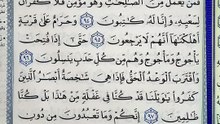 فَمَن يَعْمَلْ مِنَ الصَّالِحَاتِ وَهُوَ مُؤْمِنٌ فَلَا كُفْرَانَ
لِسَعْيِهِ وَإِنَّا لَهُ كَاتِبُونَ ٩٤ وَحَرَامٌ عَلَىٰ قَرْيَةٍ
أَهْلَكْنَاهَا أَنَّهُمْ لَا يَرْجِعُونَ ٩٥ حَتَّىٰ إِذَا فُتِحَتْ
يَأْجُوجُ وَمَأْجُوجُ وَهُم مِّن كُلِّ حَدَبٍ يَنسِلُونَ ٩٦
وَاقْتَرَبَ الْوَعْدُ الْحَقُّ فَإِذَا هِيَ شَاخِصَةٌ أَبْصَارُ الَّذِينَ
كَفَرُوا يَا وَيْلَنَا قَدْ كُنَّا فِي غَفْلَةٍ مِّنْ هَٰذَا بَلْ كُنَّا
ظَالِمِينَ ٩٧ إِنَّكُمْ وَمَا تَعْبُدُونَ مِن دُونِ